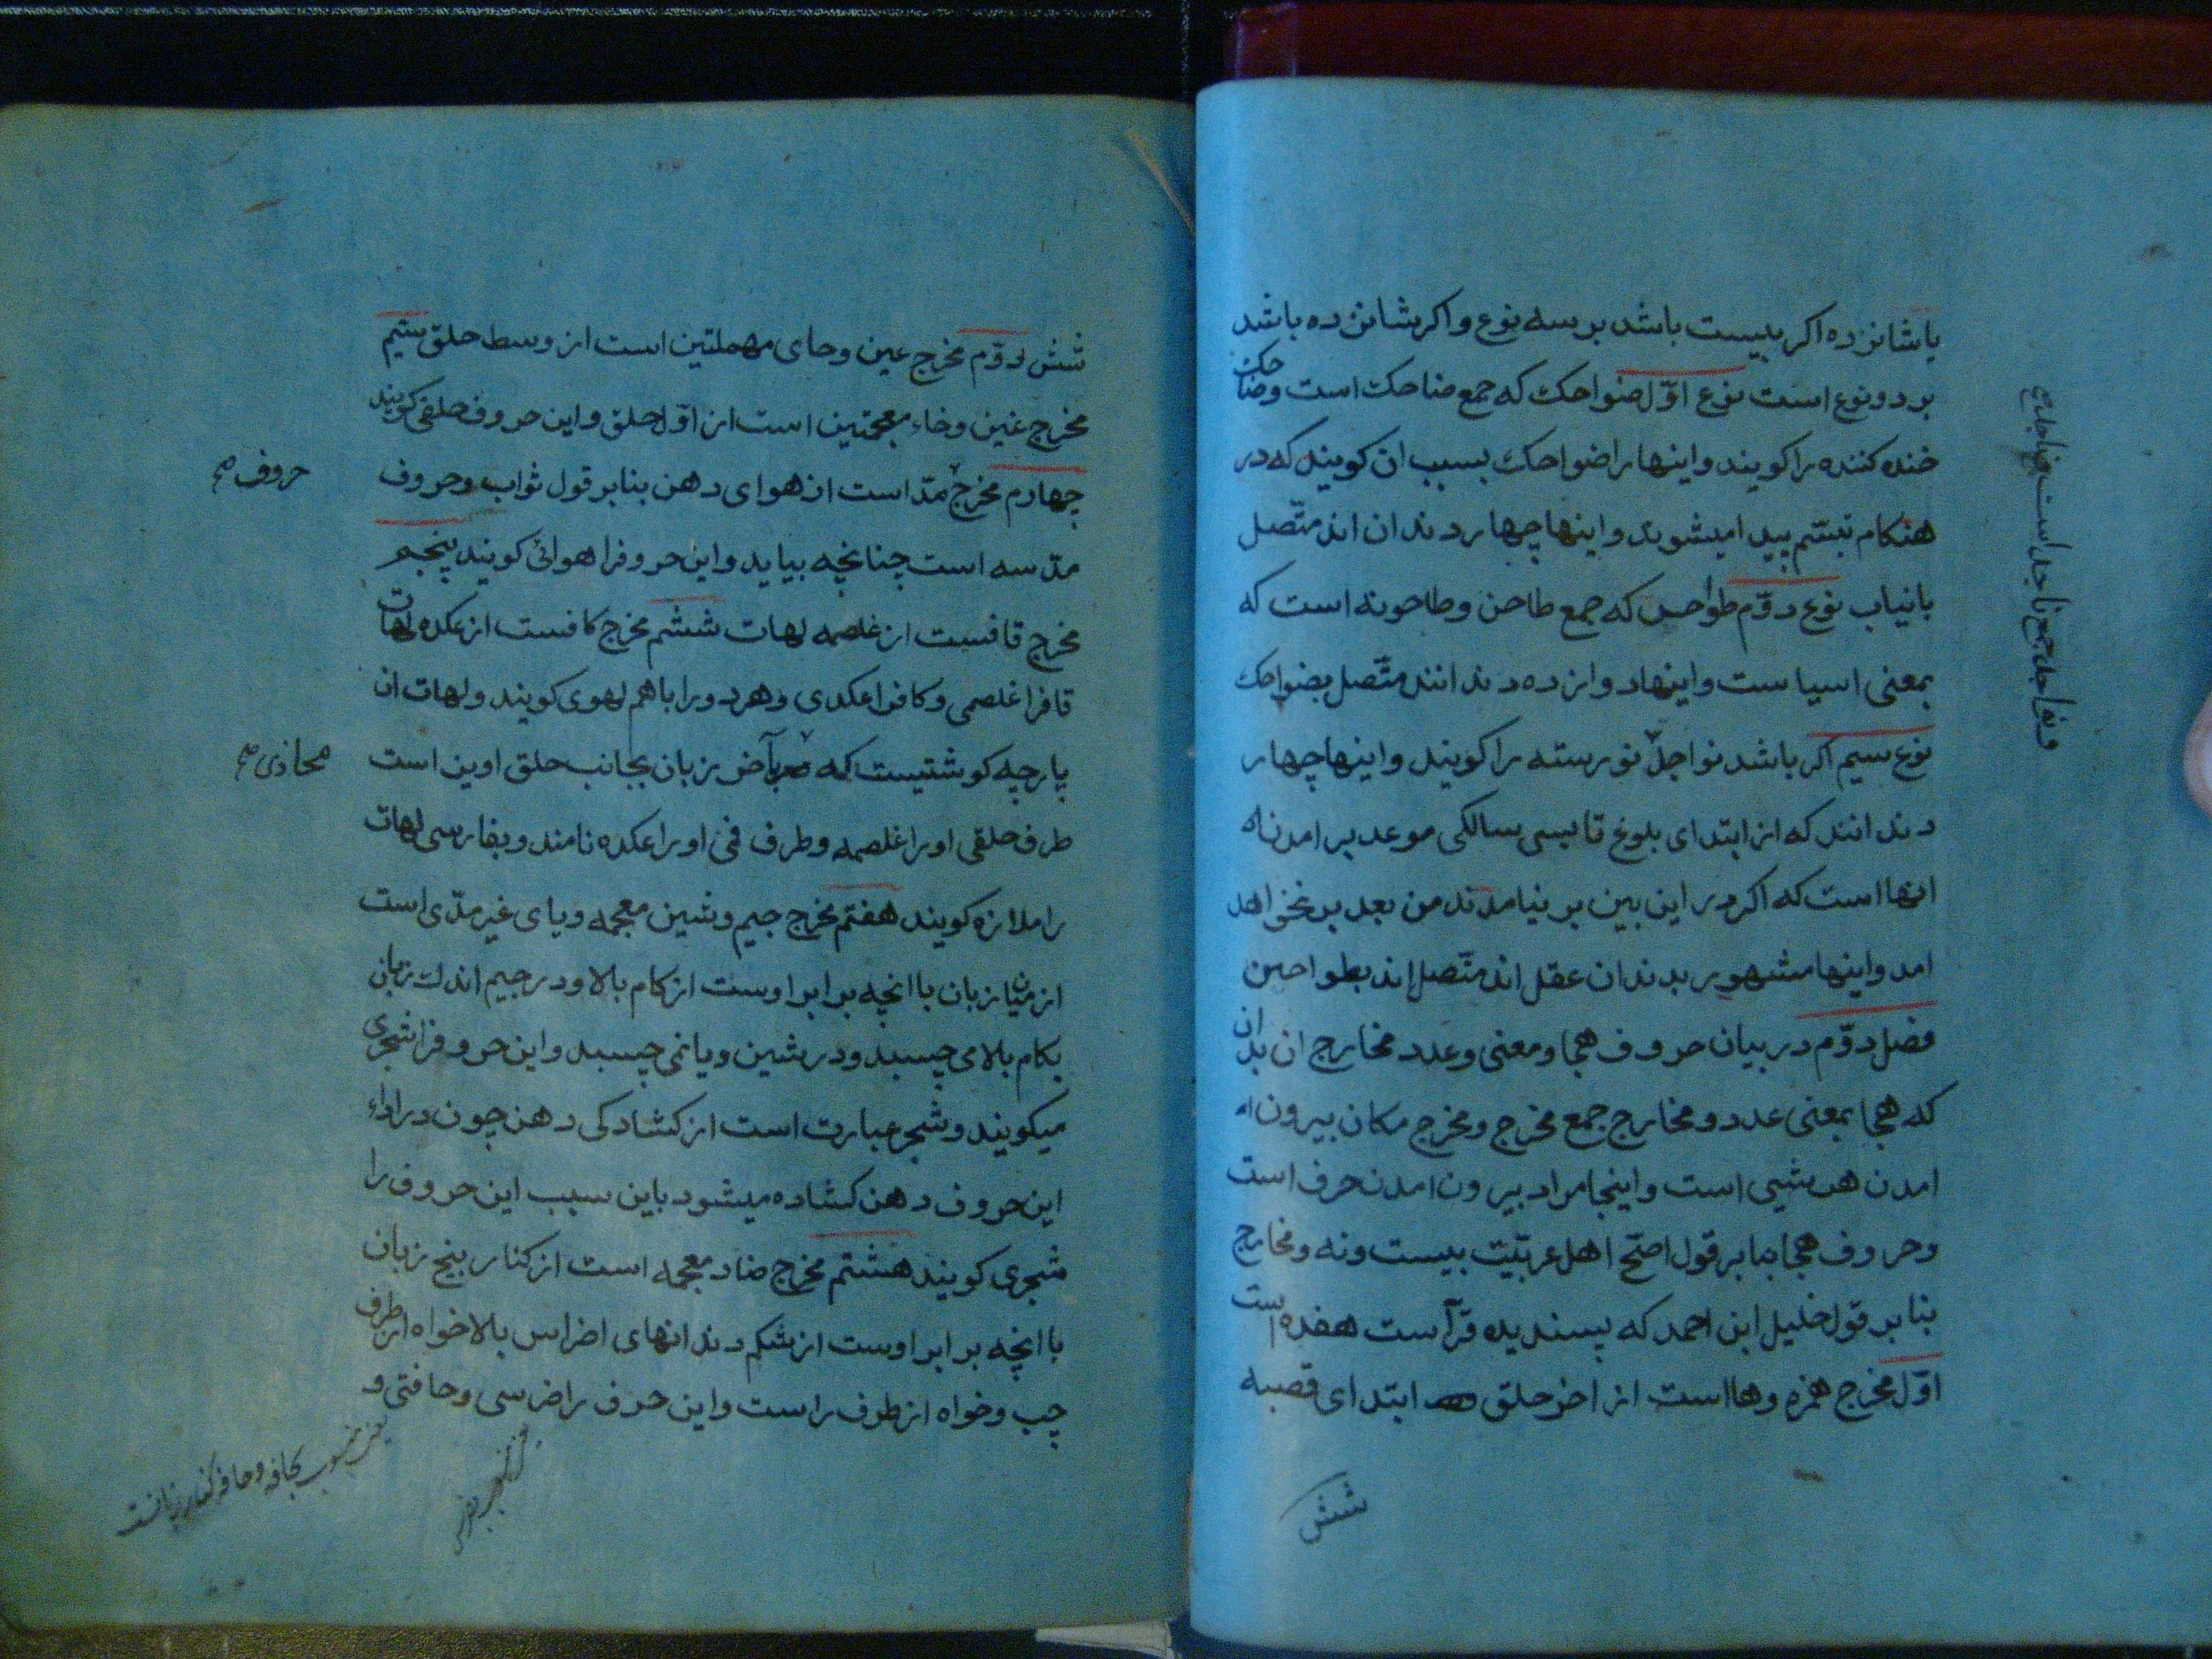 یا شانزده اکر بیست باشد بر سه نوع و اکر شانزده باشد
بر دو نوع است نوع اوّل ضواحک که جمع ضاحک است و ضاحک
خنده کننده را کویند و اینها را ضواحک بسبب ان کویند که در
هنکام تبسّم پیدا میشوند و اینها چهار دندان اند متّصل
بانیاب نوع دوّم طواحن که جمع طاحن و طاحونه است که
بمعنی اسیا ست و اینها دوازده دندانند متّصل بضواحک
نوع سیم اکر باشد نواجل نو رسته را کویند و اینها چهار
دندانند که از ابتدای بلوغ تا بسی سالکی موعد بر امدن
انها است که اکر در این بین بر نیامدند من بعد بر نخواهد
امد و اینها مشهور بدندان عقل اند متّصل اند بطواحین
فصل دوّم در بیان حروف هجا و معنی و عدد مخارج ان بدان
که هجا بمعنی عدد و مخارج جمع مخرج و مخرج مکان بیرون
امدن هر شیی است و اینجا مراد بیرون امدن حرف است
و حروف هجا بنابر قول اصّح اهل عربیّت بیست و نه و مخارج
بنابر قول خلیل ابن احمد که پسندیده قرّآست هفده است
اوّل مخرج همزه و ها است از اخر حلق ابتدای قصبه
شش
شش دوّم مخرج عین و حای مهملتین است از وسط حلق سیم
مخرج غین و خاء معجمتین است از اوّل حلق و این حروف حلقی کویند
چهارم مخرج مدّ است از هوای دهن بنابر قول ثواب و حروف
حروف صح
مدّ سه است چنانچه بیاید و این حروفرا هوائی کویند پنجم
مخرج قافست از غلصمه لهات ششم مخرج کافست از عکده لهات
قافرا غلصمی و کافرا عکدی و هر دو را باهم لهوی کویند و لهات ان
پارچه کوشتیست که بآخر زبان بجانب حلق اوین است
محاذی صح
طرف حلقی او را غلصمه و طرف فی او را عکده نامند و بفارسی لهات
را ملازه کویند هفتم مخرج جیم و شین معجمه و یای غیر مدّی است
از میان زبان با انچه برابر اوست از کام بالا و در جیم اندک زبان
بکام بالا می چسبد و در شین و یا نمی چسبد و این حروفرا شجری
میکویند و شجر عبارت است از کشادکی دهن چون در اداء
این حروف دهن کشاده میشود باین سبب این حروف را
شجری کویند هشتم مخرج ضاد معجمه است از کنار بیخ زبان
با انچه برابر اوست از شکم دندانهای اضراس بالا خواه از طرف
چپ و خواه از طرف راست و این حرف را ضرسی و حافتی و